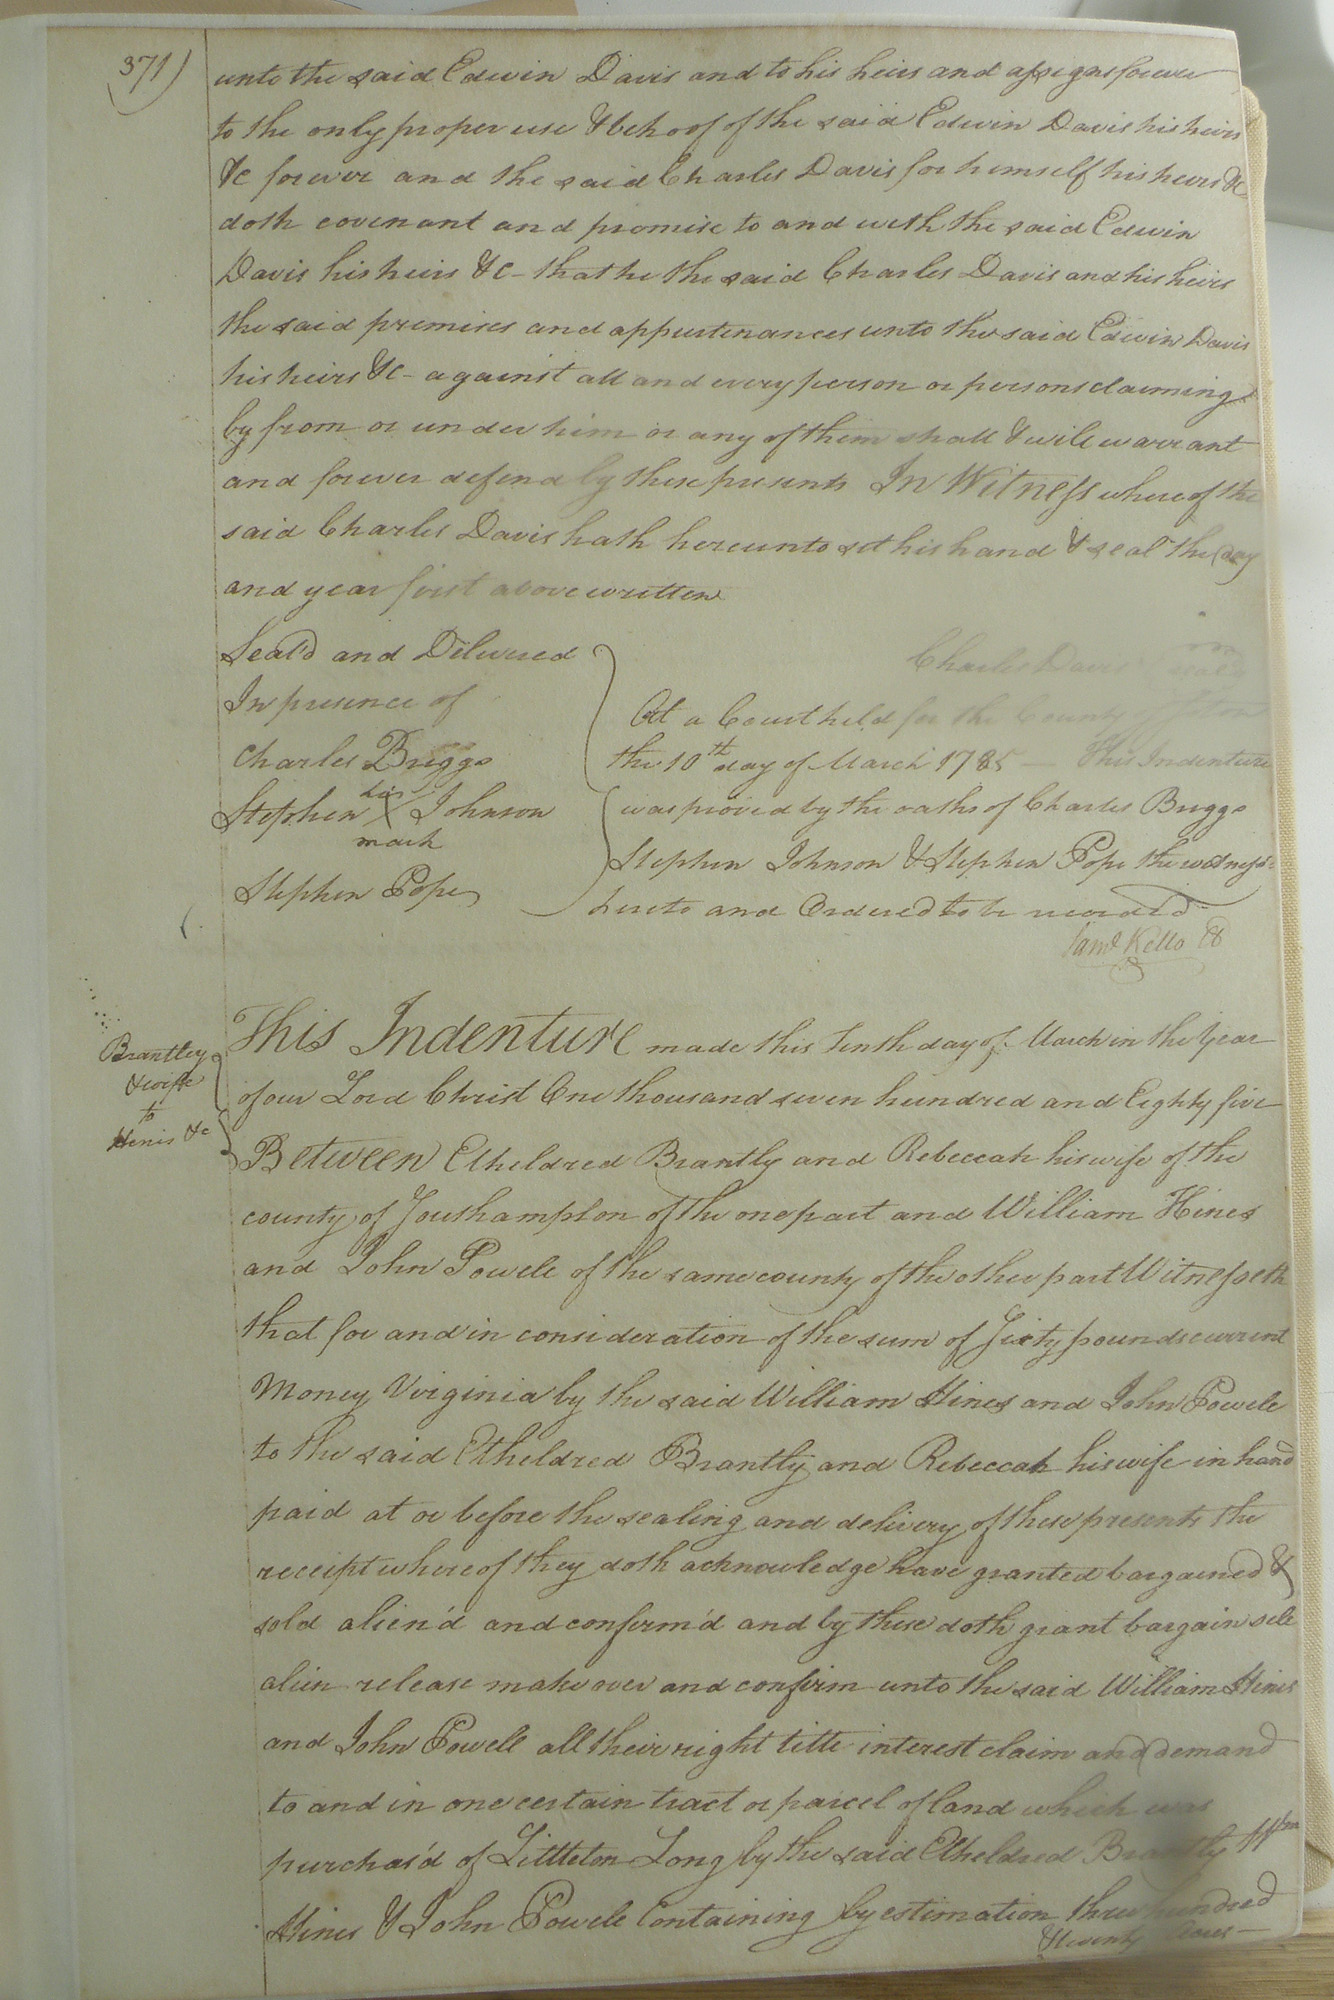 371)
unto the said Edwin Davis and to his heirs and assigns forever
to the only proper use & behoof of the said Edwin Davis his heirs
&c forever and the said Charles Davis for himself his heirs &c
doth covenant and promise to and with the said Edwin
Davis his heirs &c - that he the said Charles Davis and his heirs
the said premises and appurtenances unto the said Edwin Davis
his heirs &c - against all and every person or persons claiming
by from or under him or any of them shall & will warrant
and forever defend by these presents In Witness whereof the
said Charles Davis hath hereunto set his hand & seal the day
and year first above written
Seal'd and Delivered
In presence of
Charles Briggs
his
Stephen X Johnson
mark
Stephen Pope
Charles Davis seal
At a Court held for the County
the 10th day of March 1785 — This Indenture
was proved by the oaths of Charles Briggs
Stephen Johnson & Stephen Pope the witness's
hereto and Ordered to be record'd
Saml Kello
Brantley
& wife
to
Hines &c
This Indenture made this tenth day of March in the Year
of our Lord Christ One thousand seven hundred and Eighty five
Between Etheldred Brantly and Rebeccah his wife of the
county of Southampton of the one part and William Hines
and John Powell of the same county of the other part Witnesseth
that for and in consideration of the sum of Sixty pounds current
Money Virginia by the said William Hines and John Powell
to the said Etheldred Brantly and Rebeccah his wife in hand
paid at or before the sealing and delivery of these presents the
receipt whereof they doth acknowledge have granted bargained &
sold alien'd and confirm'd and by these doth grant bargain sell
alien release make over and confirm unto the said William Hines
and John Powell all their right title interest claim and demand
to and in one certain tract or parcel of land which was
purchas'd of Littleton Long by the said Etheldred Brantly Wm
Hines & John Powell Containing by estimation three hundred
& twenty Acres —